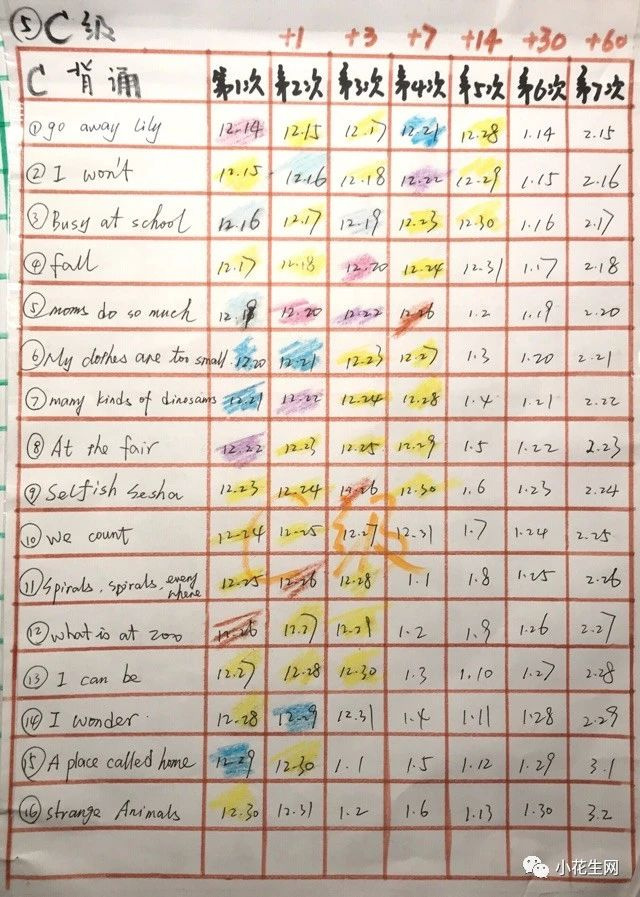 ⑤ C 级
+1 +3 +7 +14 +30 +60
C 背诵 第1次 第2次 第3次 第4次 第5次 第6次 第7次
① go away Lily 12.14 12.15 12.17 12.21 12.28 1.14 2.15
② I won't 12.15 12.16 12.18 12.22 12.29 1.15 2.16
③ Busy at school 12.16 12.17 12.19 12.23 12.30 1.16 2.17
④ fall 12.17 12.18 12.20 12.24 12.31 1.17 2.18
⑤ moms do so much 12.19 12.20 12.22 12.26 1.2 1.19 2.20
⑥ My clothes are too small 12.20 12.21 12.23 12.27 1.3 1.20 2.21
⑦ many kinds of dinosaurs 12.21 12.22 12.24 12.28 1.4 1.21 2.22
⑧ At the fair 12.22 12.23 12.25 12.29 1.5 1.22 2.23
⑨ Selfish Sesha 12.23 12.24 12.26 12.30 1.6 1.23 2.24
⑩ We count 12.24 12.25 12.27 12.31 1.7 1.24 2.25
C级
⑪ Spirals, spirals, everywhere 12.25 12.26 12.28 1.1 1.8 1.25 2.26
⑫ what is at zoo 12.26 12.27 12.29 1.2 1.9 1.26 2.27
⑬ I can be 12.27 12.28 12.30 1.3 1.10 1.27 2.28
⑭ I wonder 12.28 12.29 12.31 1.4 1.11 1.28 2.29
⑮ A place called home 12.29 12.30 1.1 1.5 1.12 1.29 3.1
⑯ strange Animals 12.30 12.31 1.2 1.6 1.13 1.30 3.2
小花生网